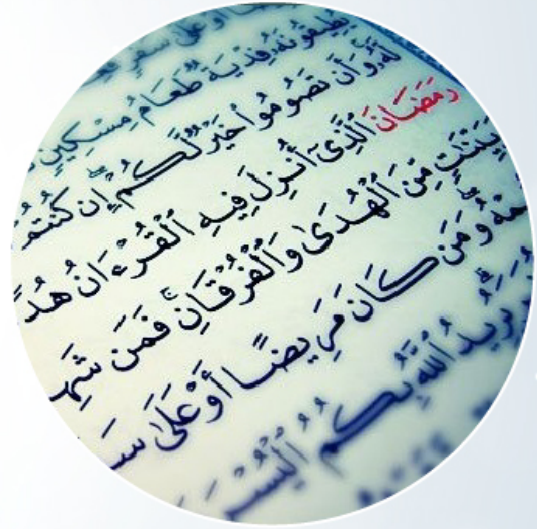 أو على سفر
يُطِيقُونَهُۥ فِدْيَةٌ طَعَامُ مِسْكِينٍ
لَّهُۥ وَأَن تَصُومُوا۟ خَيْرٌ لَّكُمْ إِن كُنتُمْ
رَمَضَانَ ٱلَّذِىٓ أُنزِلَ فِيهِ ٱلْقُرْءَانُ هُدًى
مِّنَ ٱلْهُدَىٰ وَٱلْفُرْقَانِ فَمَن شَهِ
وَمَن كَانَ مَرِيضًا أَوْ عَلَىٰ سَ
يُرِيدُ ٱللَّهُ بِكُمُ ٱلْيُسْرَ